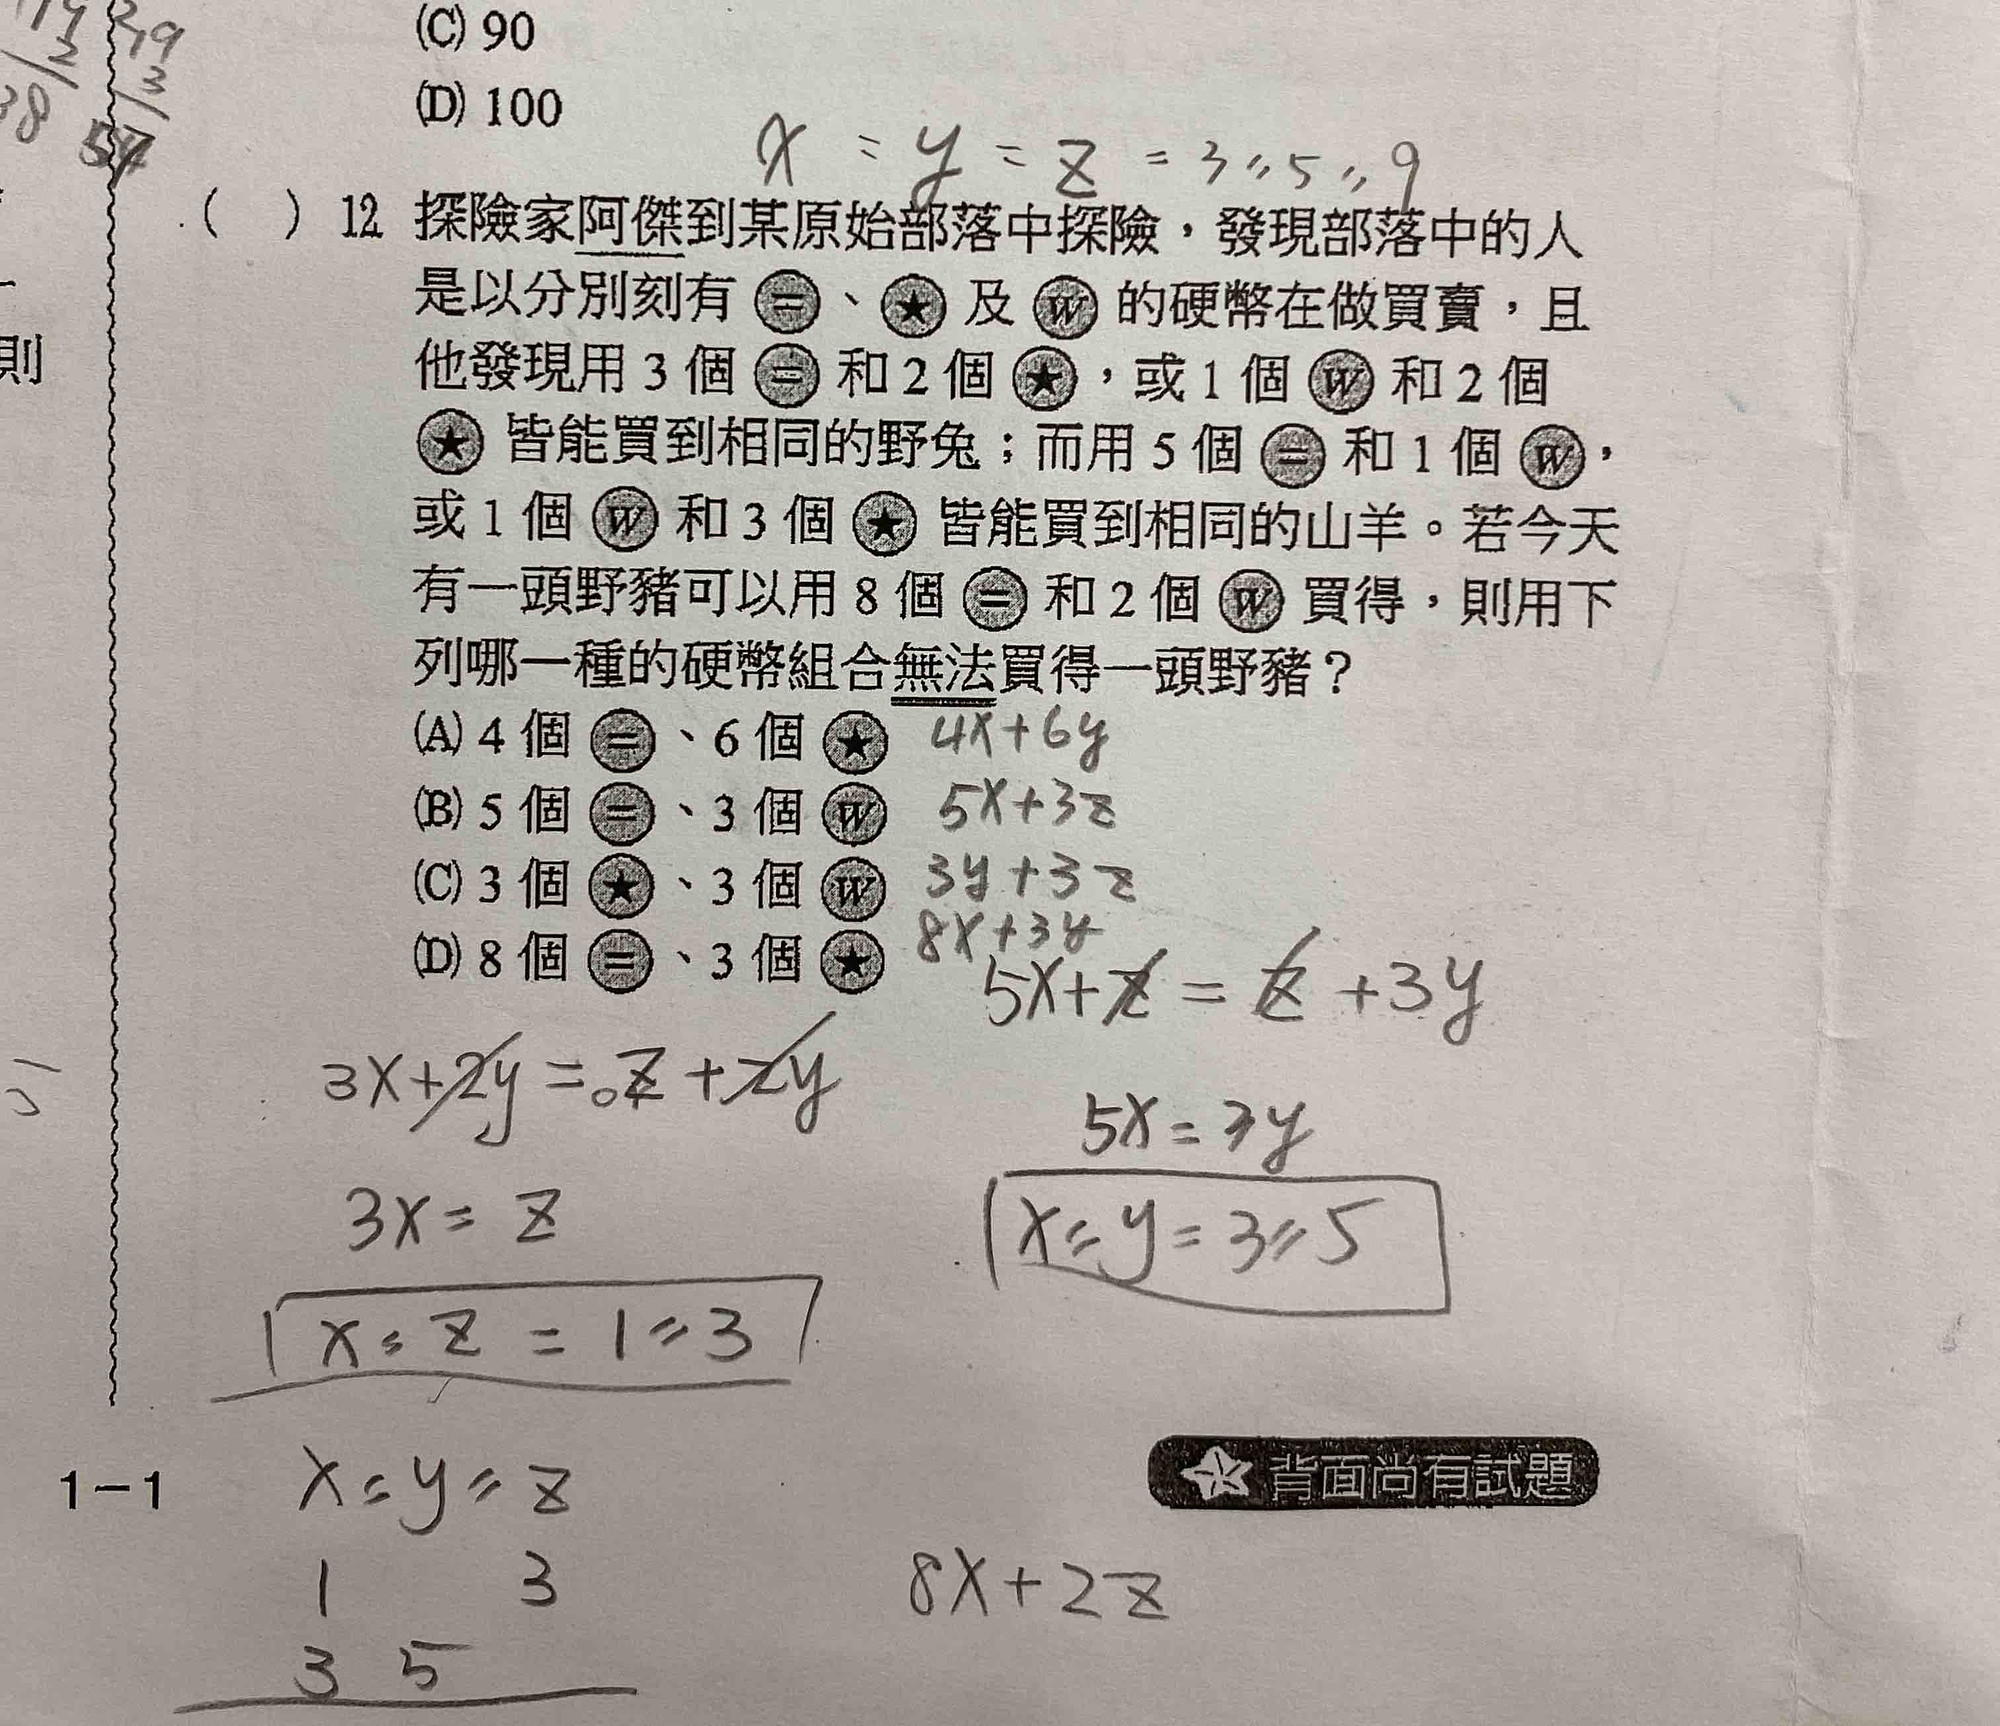 (C) 90
(D) 100
19
3
57
38
x : y : z = 3 : 5 : 9
( ) 12 探險家阿傑到某原始部落中探險，發現部落中的人
是以分別刻有 = 、 ★ 及 W 的硬幣在做買賣，且
他發現用 3 個 = 和 2 個 ★ ，或 1 個 W 和 2 個
★ 皆能買到相同的野兔；而用 5 個 = 和 1 個 W ，
或 1 個 W 和 3 個 ★ 皆能買到相同的山羊。若今天
有一頭野豬可以用 8 個 = 和 2 個 W 買得，則用下
列哪一種的硬幣組合無法買得一頭野豬？
(A) 4 個 = 、6 個 ★ 4x+6y
(B) 5 個 = 、3 個 W 5x+3z
(C) 3 個 ★ 、3 個 W 3y+3z
(D) 8 個 = 、3 個 ★ 8x+3y
則
5x+z = z+3y
3x+2y = z+2y
5x = 3y
3x = z
x : y = 3 : 5
x : z = 1 : 3
x : y : z
1 3
3 5
8x+2z
1－1
背面尚有試題